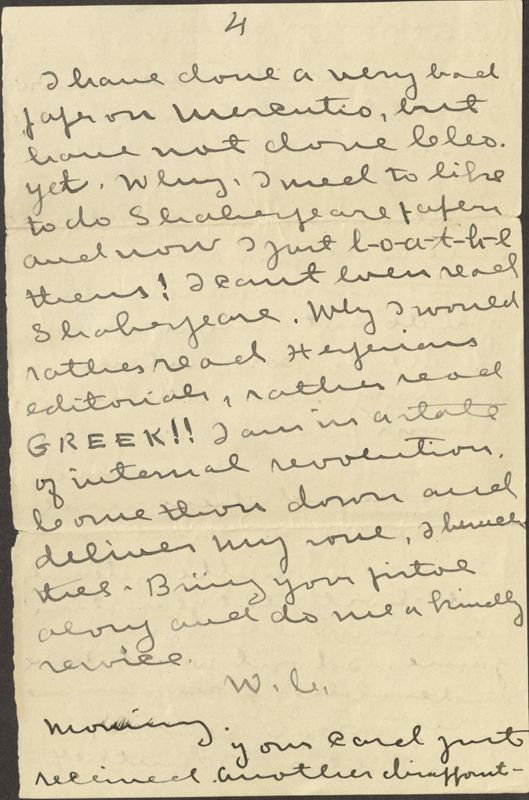 4
I have done a very bad
paper on Mercutio, but
have not done Cleo.
yet. Why, I used to like
to do Shakespeare papers
and now I just l-o-a-t-h-e
them! I cant even read
Shakespeare. Why I would
rather read Hesperian
editorials, rather read
GREEK!! I am in a state
of internal revolution.
Come thou down and
deliver my soul, I beseech
thee. Bring your pistol
along and do me a kindly
service.
W. C.
Morning. your card just
recieved. another disappoint-